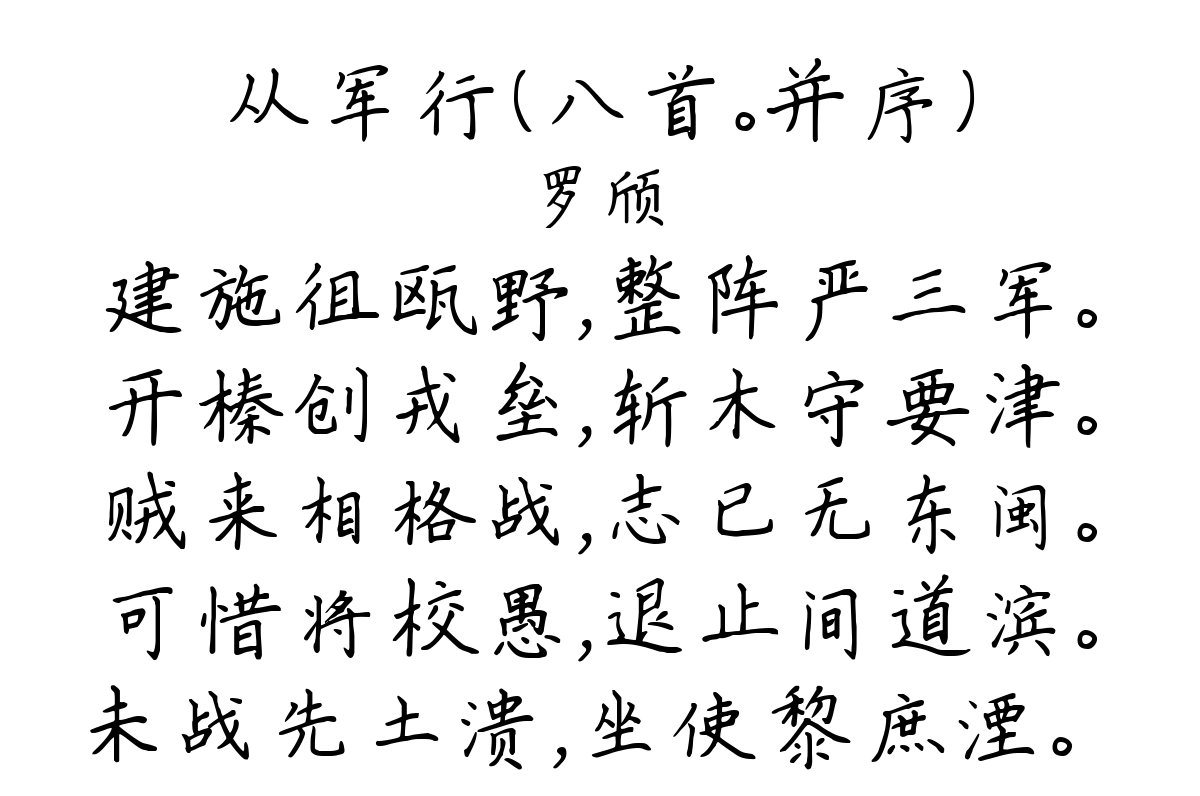 从军行(八首。并序)
罗颀
建施徂瓯野,整阵严三军。
开榛创戎垒,斩木守要津。
贼来相格战,志已无东闽。
可惜将校愚,退止间道滨。
未战先土溃,坐使黎庶湮。